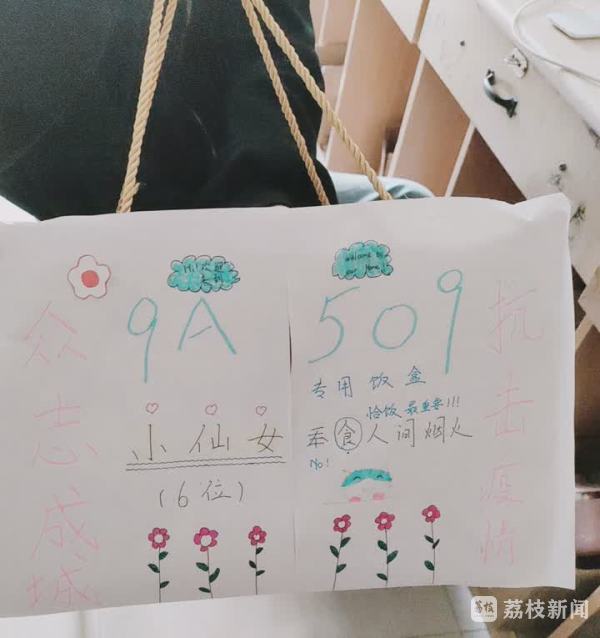 众志成城
9A
小仙女
(6位)
welcome to
our Home
509
专用饭盒
恰饭最重要!!!
食人间烟火
No!
抗击疫情
荔枝
荔枝新闻